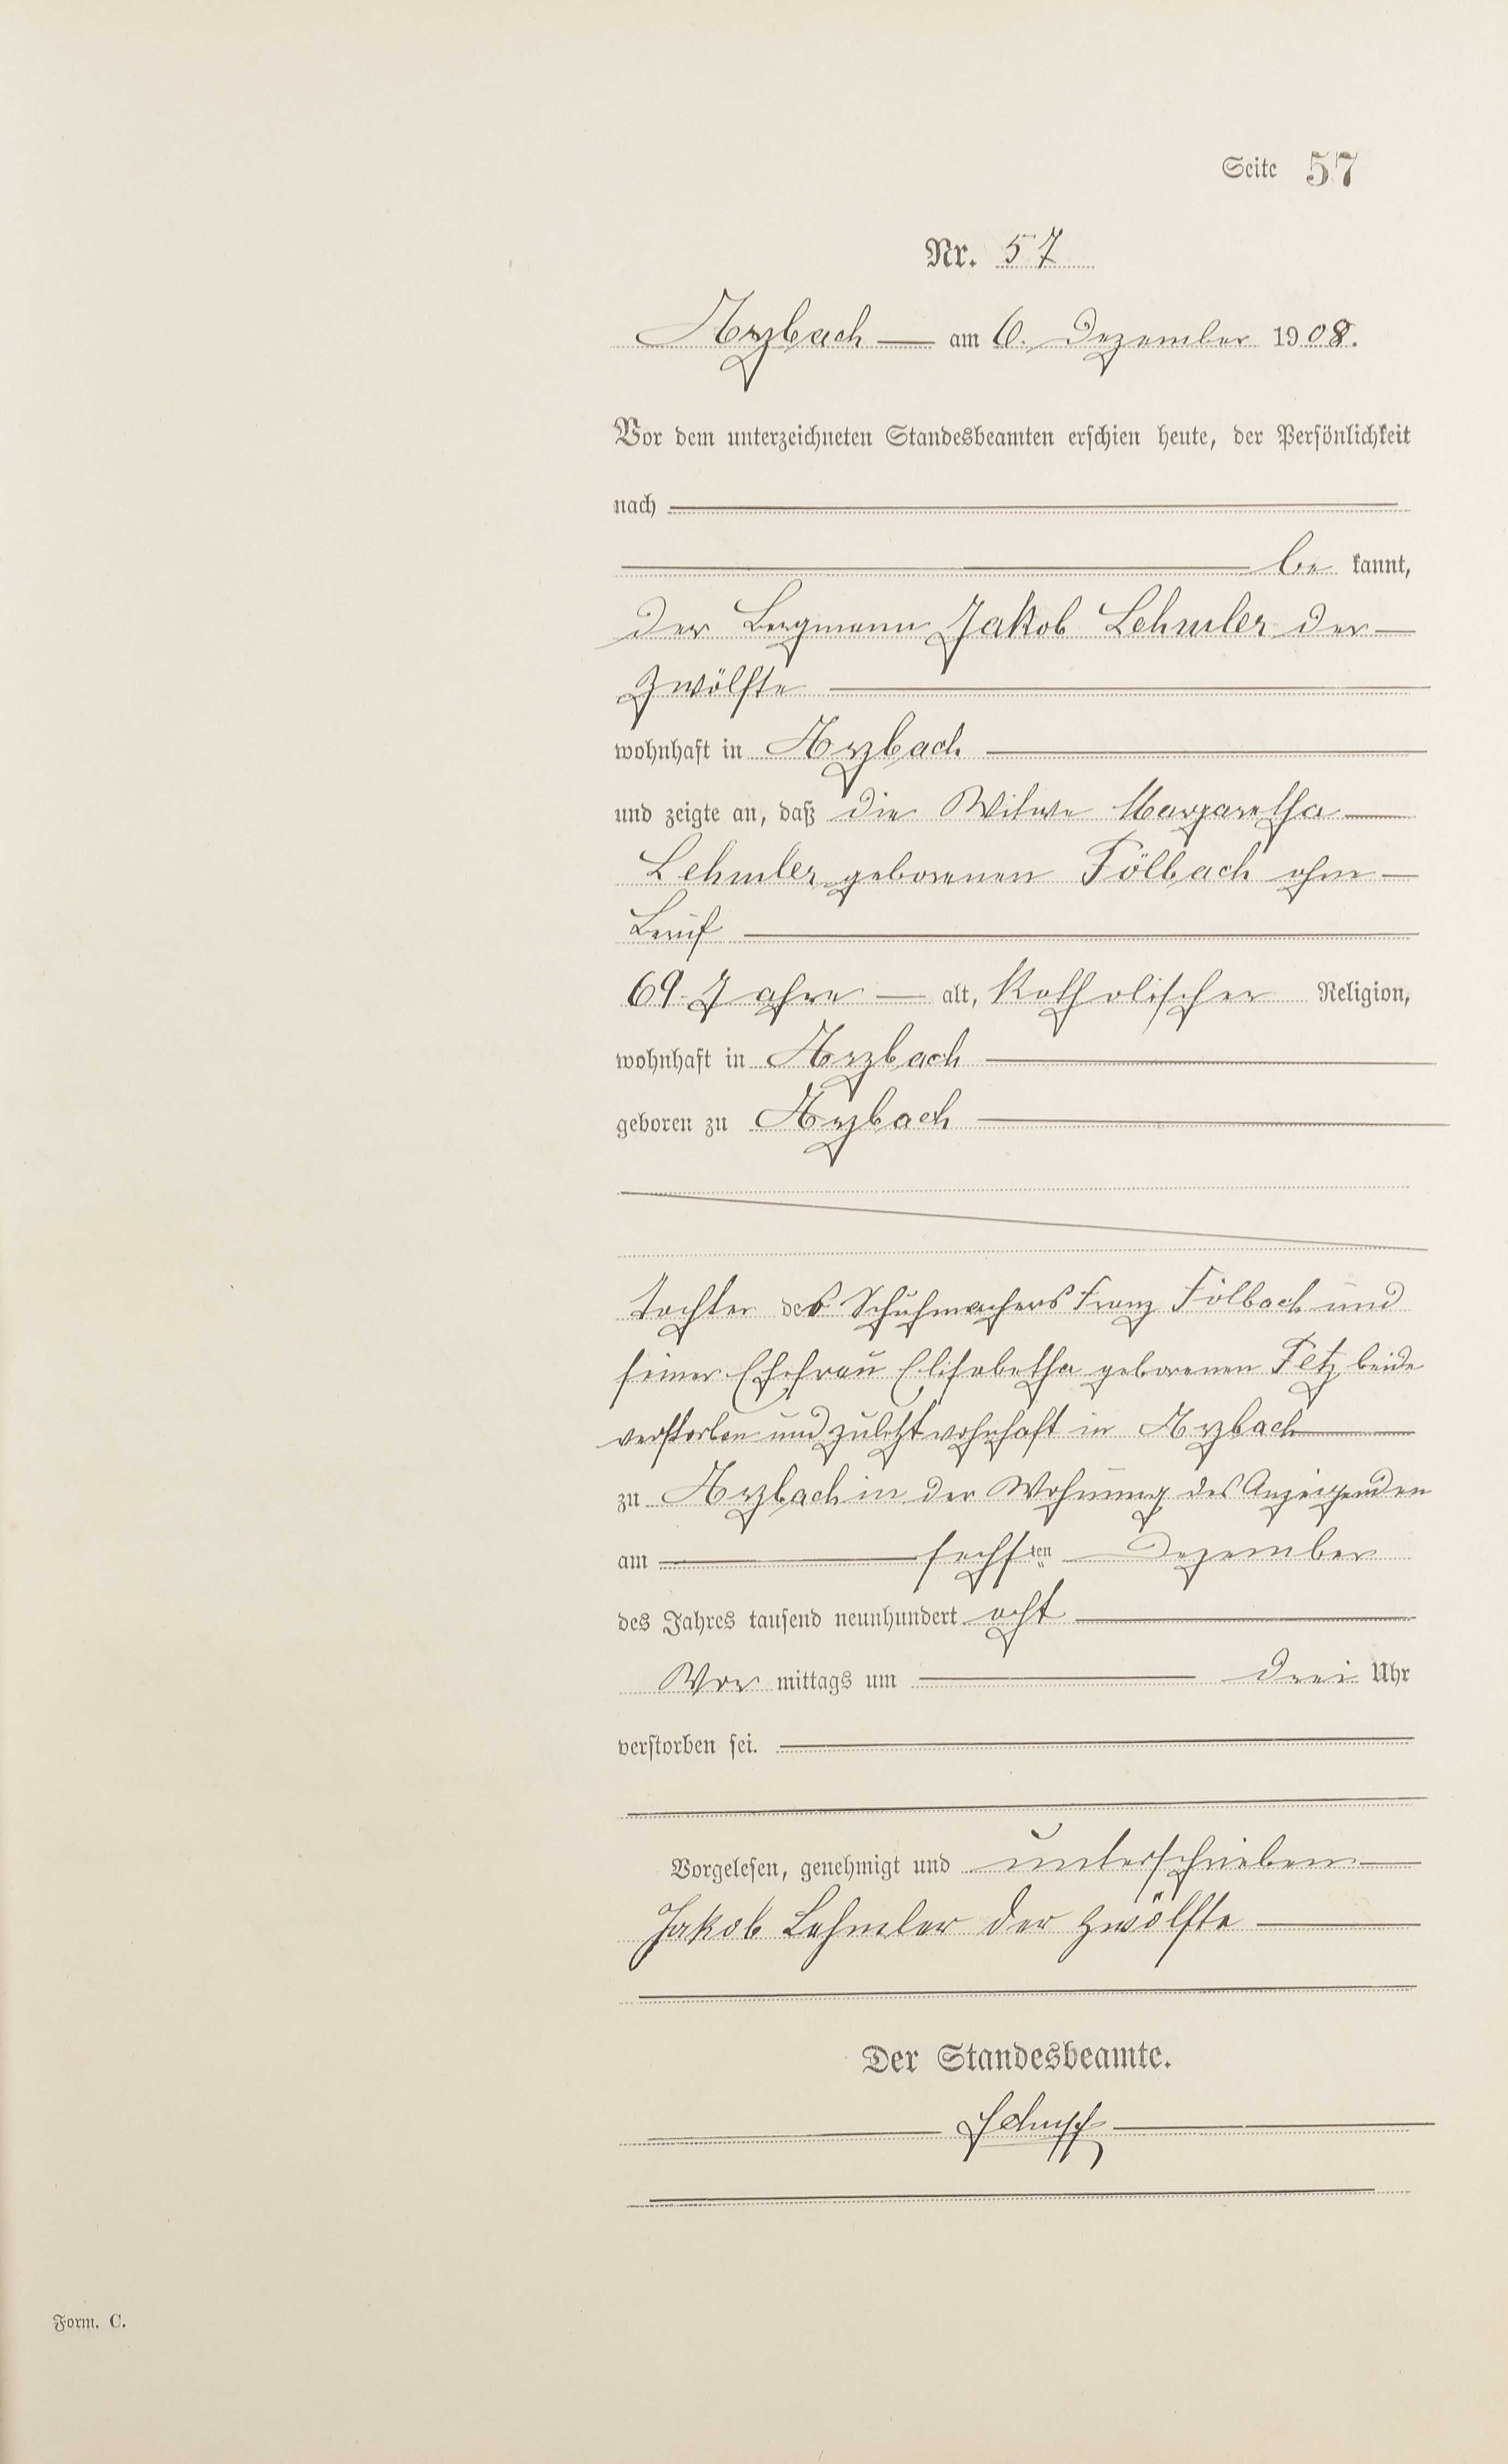 Seite 57
Nr. 57
Arzbach — am 6. Dezember 1908.
Vor dem unterzeichneten Standesbeamten erschien heute, der Persönlichkeit
nach
be kannt,
der Bergmann Jakob Lehmler der
Zwölfte
wohnhaft in Arzbach
und zeigte an, daß die Witwe Margaretha
Lehmler, geborenen Fölbach ohne
Beruf
69 Jahre — alt, katholischer Religion,
wohnhaft in Arzbach
geboren zu Arzbach
Tochter des Schuhmachers Franz Fölbach und
seiner Ehefrau Elisabetha geborenen Fetz, beide
verstorben und zuletzt wohnhaft in Arzbach
zu Arzbach in der Wohnung des Anzeigenden
am sechsten Dezember
des Jahres tausend neunhundert acht
Vor mittags um drei Uhr
verstorben sei.
Vorgelesen, genehmigt und unterschrieben
Jakob Lehmler der zwölfte
Der Standesbeamte.
Form. C.